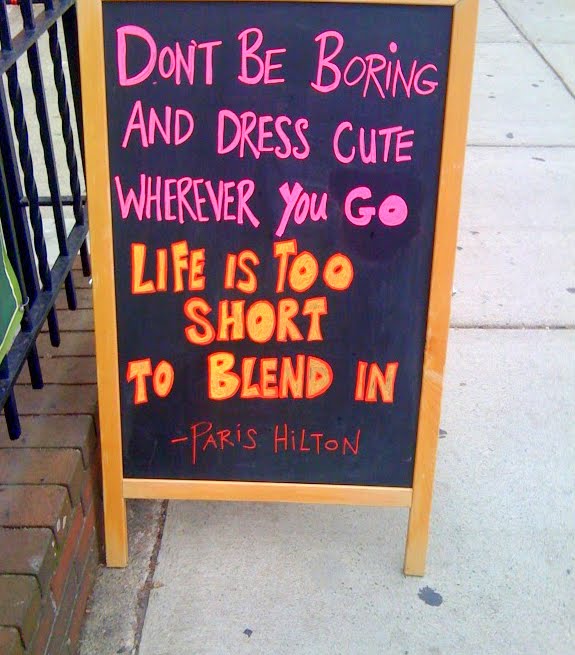 DON'T BE BORING
AND DRESS CUTE
WHEREVER YOU GO
LIFE IS TOO
SHORT
TO BLEND IN
-PARIS HILTON